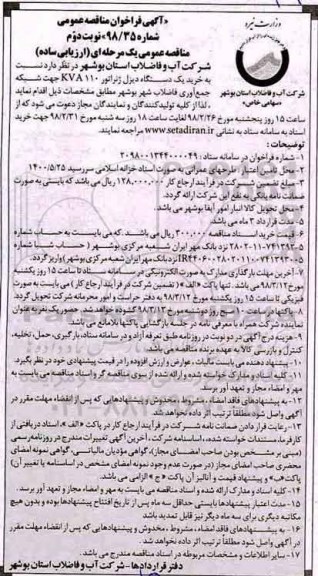 وزارت نیرو
شرکت آب و فاضلاب استان بوشهر
(سهامی خاص)
«آگهی فراخوان مناقصه عمومی
شماره ۹۸/۳۵» نوبت دوم
مناقصه عمومی یک مرحله ای (ارزیابی ساده)
شرکت آب و فاضلاب استان بوشهر در نظر دارد نسبت
به خرید یک دستگاه دیزل ژنراتور ۱۱۰ KVA جهت شبکه
جمع آوری فاضلاب شهر بوشهر مطابق مشخصات ذیل اقدام نماید
، لذا از کلیه تولیدکنندگان و نمایندگان مجاز دعوت می شود که از
ساعت ۱۵ روز پنجشنبه مورخ ۹۸/۲/۲۶ لغایت ساعت ۱۸ روز سه شنبه مورخ ۹۸/۲/۳۱ جهت خرید
اسناد به سامانه ستاد به نشانی www.setadiran.ir مراجعه نمایند.
توضیحات :
۱- شماره فراخوان در سامانه ستاد : ۲۰۹۸۰۰۱۳۴۴۰۰۰۰۴۹
۲- محل تامین اعتبار : طرحهای عمرانی به صورت اسناد خزانه اسلامی سررسید ۱۴۰۰/۵/۲۵
۳- مبلغ تضمین شرکت در فرآیند ارجاع کار ۱۲۸,۰۰۰,۰۰۰ ریال می باشد که بایستی به صورت
ضمانت نامه بانکی به نفع این شرکت ارائه گردد.
۴- محل تحویل کالا انبار امور آبفا بوشهر می باشد.
۵- مدت قرارداد ۳ ماه می باشد.
۶- قیمت خرید اسناد مناقصه ۳۰۰,۰۰۰ ریال می باشند .که می بایست به حساب شماره
نزد بانک مهر ایران شعبه مرکزی بوشهر ( حساب شبا شماره
نزد بانک مهر ایران شعبه مرکزی بوشهر) واریز گردد.
۷- آخرین مهلت بارگذاری مدارک به صورت الکترونیکی در سامانه ستاد تا ساعت ۱۵ روز یکشنبه
مورخ ۹۸/۳/۱۲ می باشد. تنها پاکت «الف» ( تضمین شرکت در فرآیند ارجاع کار ) می بایست به صورت
فیزیکی تا ساعت ۱۵ روز یکشنبه مورخ ۹۸/۳/۱۲ به دفتر حراست و امور محرمانه شرکت تحویل گردد.
۸- پاکتها در ساعت ۱۰ صبح روز دوشنبه مورخ ۹۸/۳/۱۳ گشوده خواهد شد. حضور یک نفر به عنوان
نماینده شرکت همراه با معرفی نامه در جلسه بازگشایی پاکتها بلامانع می باشد.
۹- هزینه درج آگهی در دو نوبت در روزنامه طبق تعرفه آزاد و در سامانه ستاد، بارگیری، حمل، تخلیه،
کنترل و بازرسی کالا به عهده برنده مناقصه می باشد.
۱۰- پیشنهاد دهنده می بایست مالیات , عوارض و ارزش افزوده را در قیمت پیشنهادی خود در نظر بگیرد.
۱۱- کلیه اسناد و مدارک خواسته شده و ارائه شده از سوی مناقصه گر و اسناد مناقصه می بایست به
مهر و امضاء مجاز و تعهد آور برسد.
۱۲- به پیشنهادهای فاقد امضاء ، مشروط ، مخدوش و پیشنهادهایی که پس از انقضاء مهلت مقرر در
آگهی واصل شود مطلقاً ترتیب اثر داده نخواهد شد.
۱۳- رعایت قرار دادن ضمانت نامه شرکت در فرآیند ارجاع کار در پاکت «الف»، اسناد دریافتی از
کارفرما، مستندات خواسته شده ، اساسنامه شرکت ، آخرین آگهی تغییرات مندرج در روزنامه رسمی
(مبنی بر مشخص بودن صاحب امضای مجاز)، گواهی مؤدیان مالیاتی، گواهی نمونه امضای
محضری صاحب امضای مجاز (در صورت عدم وجود نمونه امضای مشخص در اساسنامه یا تغییر آن)
پاکت «ب» و پیشنهاد قیمت و آنالیز آن پاکت « ج » الزامی می باشد.
۱۴- کلیه اسناد و مدارک ارائه شده و اسناد مناقصه می بایست به مهر و امضاء مجاز و تعهد آور برسد.
۱۵- مدت اعتبار پیشنهادها بایستی حداقل سه ماه پس از تاریخ افتتاح پیشنهادها بوده و بدون هیچ
مکاتبه دیگری برای سه ماه دیگر نیز قابل تمدید باشد
۱۶- به پیشنهادهای فاقد امضاء ، مشروط ، مخدوش و پیشنهادهایی که پس از انقضاء مهلت مقرر
در آگهی واصل شود مطلقاً ترتیب اثر داده نخواهد شد.
۱۷- سایر اطلاعات و مشخصات مربوطه در اسناد مناقصه مندرج می باشد.
دفتر قراردادها - شرکت آب و فاضلاب استان بوشهر